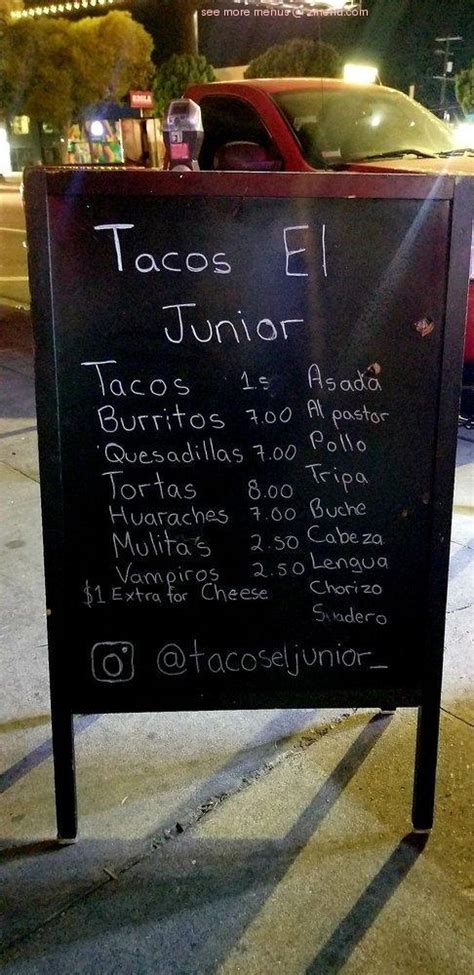 see more menus @ zmenu.com
Tacos El
Junior
Tacos 1.5
Burritos 7.00
Quesadillas 7.00
Tortas 8.00
Huaraches 7.00
Mulita's 2.50
Vampiros 2.50
$1 Extra for Cheese
Asada
Al pastor
Pollo
Tripa
Buche
Cabeza
Lengua
Chorizo
Suadero
@tacoseljunior_